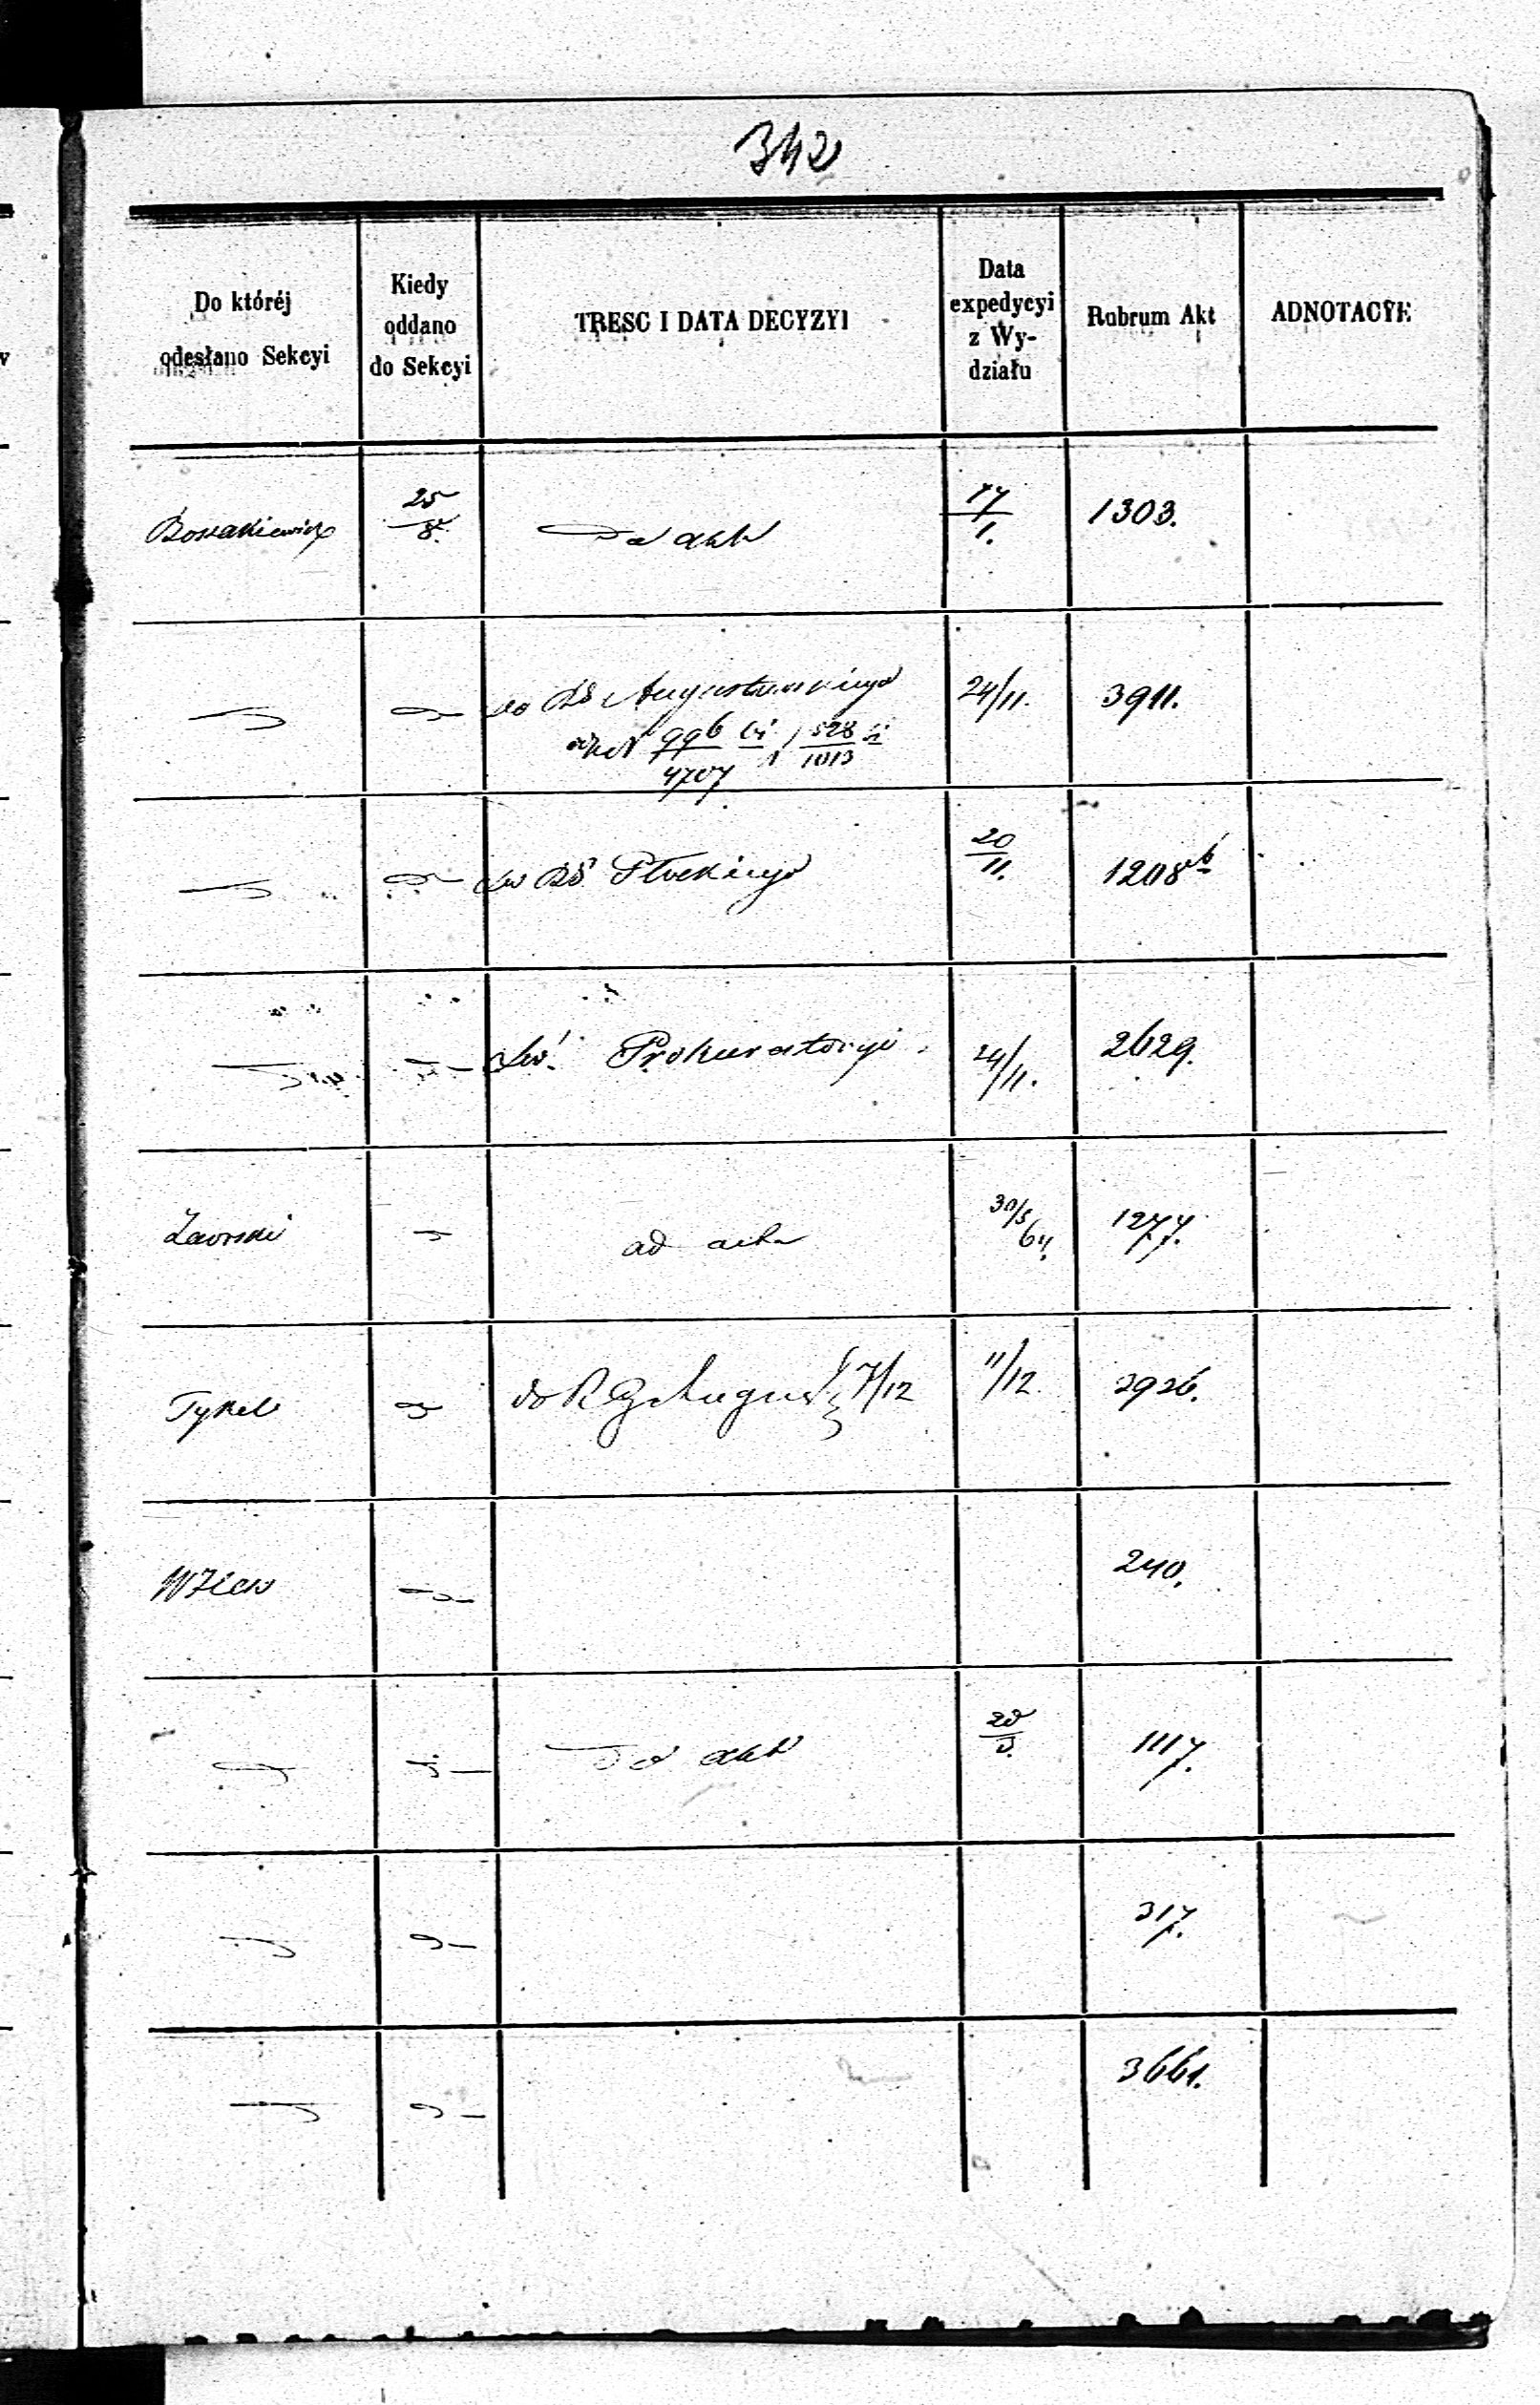 342
Do któréj
odesłano Sekcyi
Kiedy
oddano
do Sekcyi
TRESC I DATA DECYZYI
Data
expedycyi
z Wy-
działu
Rubrum Akt
ADNOTACYE
25
8.
Do akt
17
1.
1303.
do Augustowskiego
996
4707
528
1013
24/11.
3911.
Płockiego
20
11.
1208 b
do Prokuratoryi
24/11.
2629.
ad acta
30/5
64.
1277.
Tykel
do R G August 7/12
11/12
2926.
240.
Do akt
1117.
317.
3661.